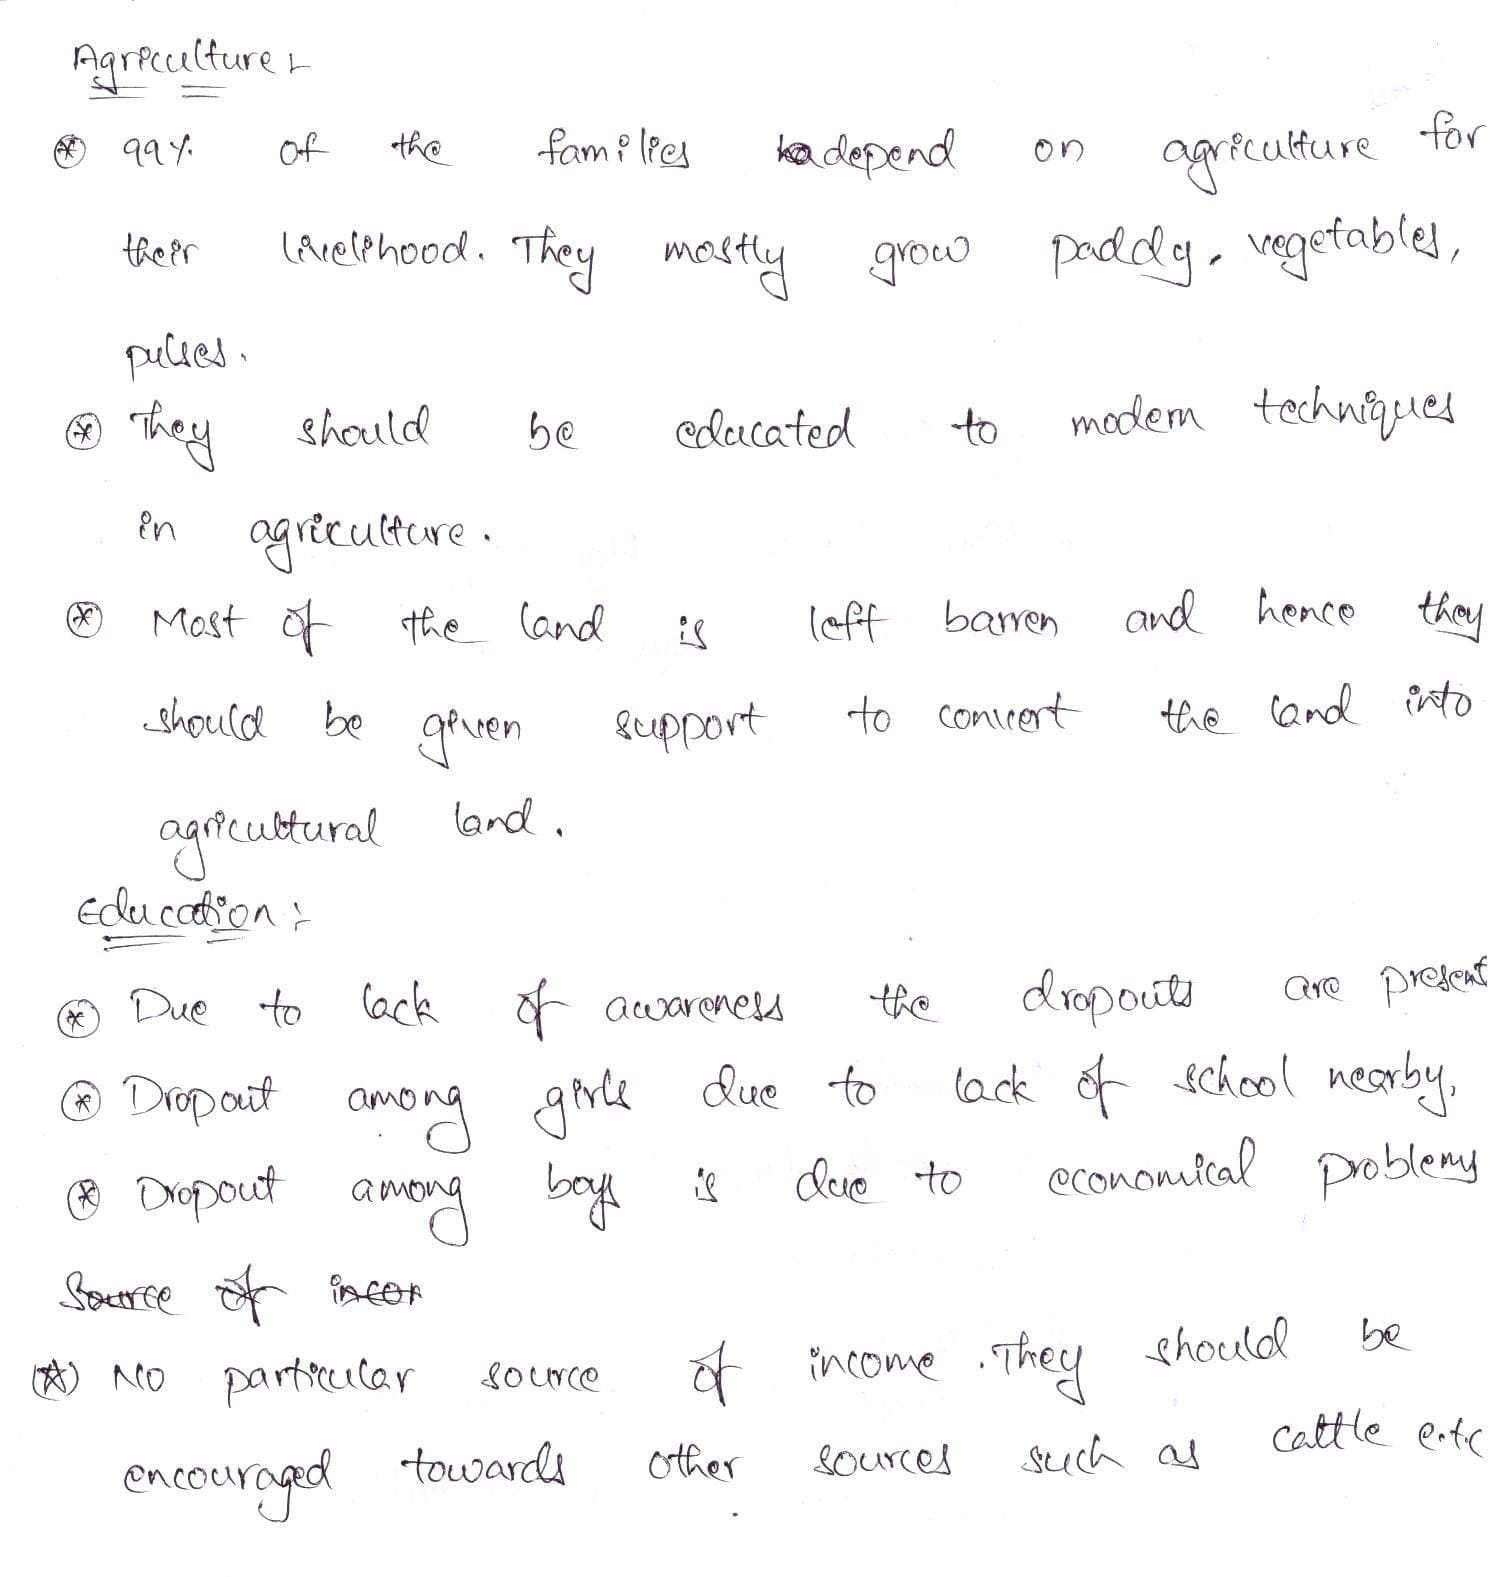 Agriculture :-
⊛ 99% of the families depend on agriculture for
their livelihood. They mostly grow paddy, vegetables,
pulses.
⊛ They should be educated to modern techniques
in agriculture.
⊛ Most of the land is left barren and hence they
should be given support to convert the land into
agricultural land.
Education :-
⊛ Due to lack of awareness the dropouts are present
⊛ Dropout among girls due to lack of school nearby,
⊛ Dropout among boys is due to economical problems
Source of incom
⊛ No particular source of income. They should be
encouraged towards other sources such as cattle e.t.c